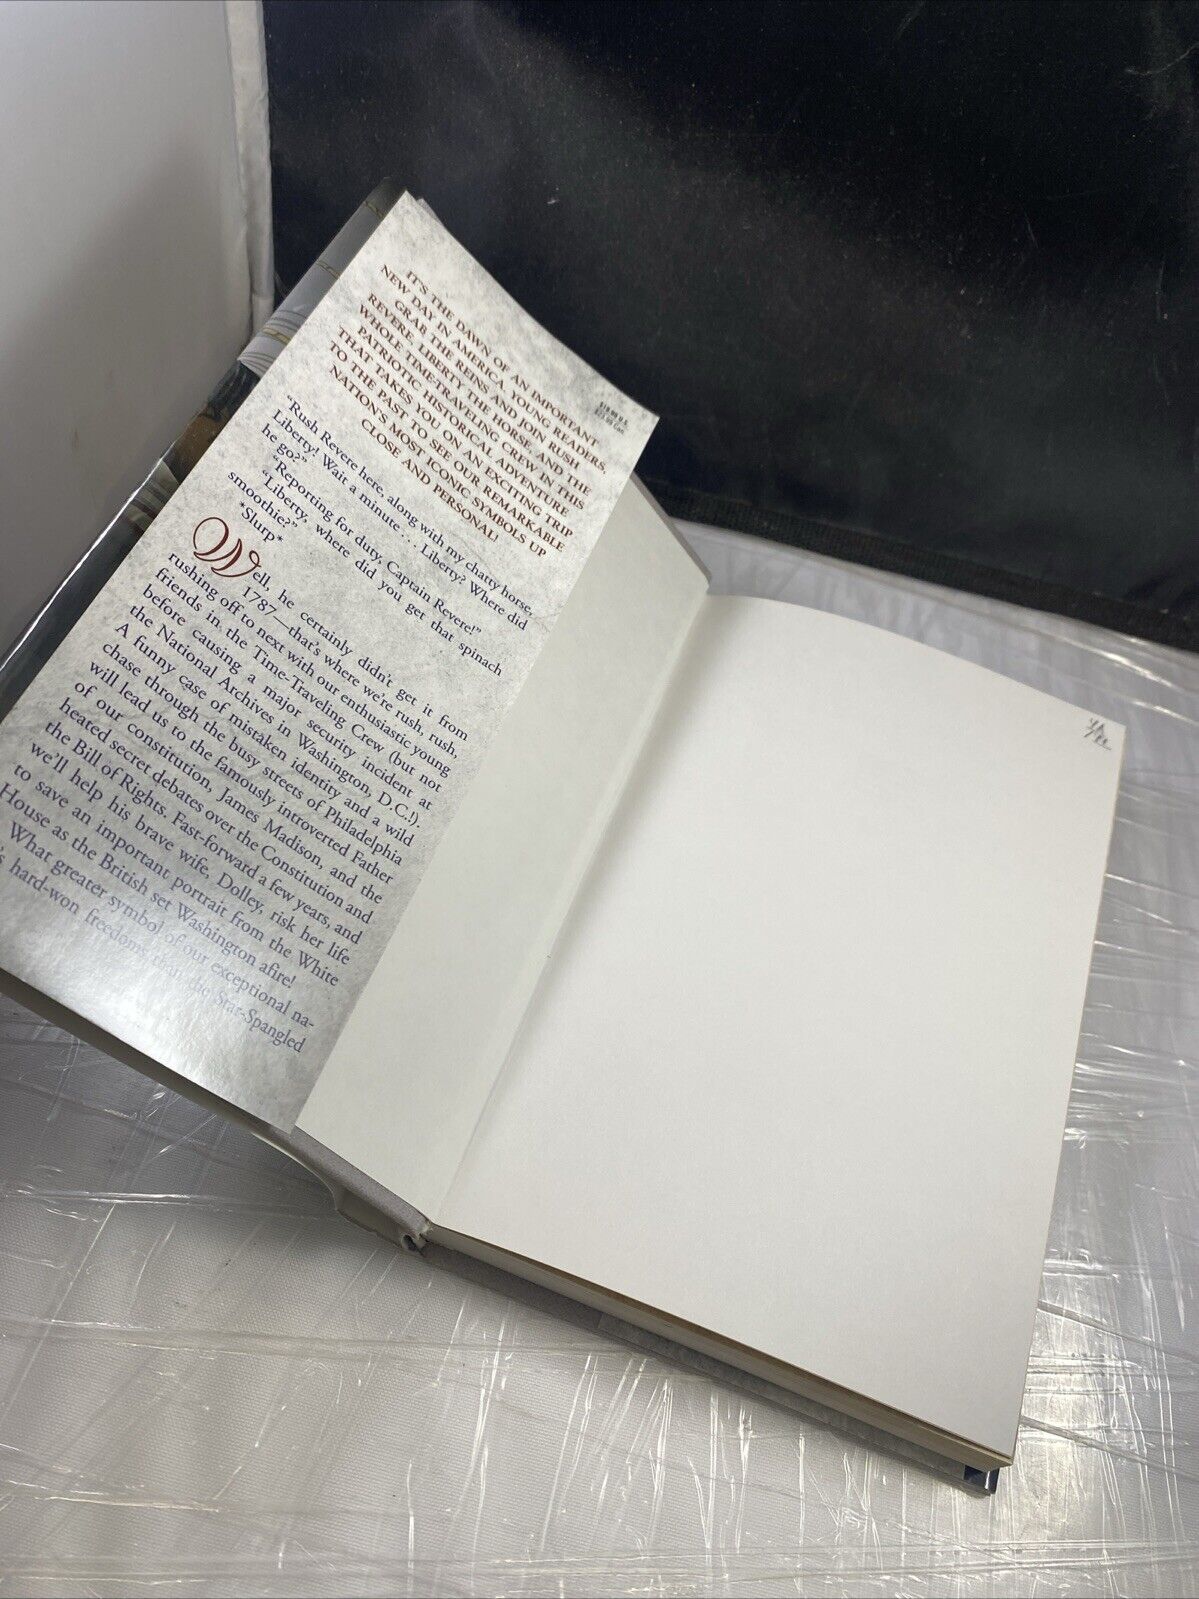 $19.99 U.S.
IT'S THE DAWN OF AN IMPORTANT
NEW DAY IN AMERICA, YOUNG READERS.
GRAB THE REINS AND JOIN RUSH
REVERE, LIBERTY THE HORSE, AND THE
WHOLE TIME-TRAVELING CREW IN THIS
PATRIOTIC HISTORICAL ADVENTURE
THAT TAKES YOU ON AN EXCITING TRIP
TO THE PAST TO SEE OUR REMARKABLE
NATION'S MOST ICONIC SYMBOLS UP
CLOSE AND PERSONAL!
"Rush Revere here, along with my chatty horse,
Liberty! Wait a minute . . . Liberty? Where did
he go?"
"Reporting for duty, Captain Revere!"
"Liberty, where did you get that spinach
smoothie?"
*Slurp*
Well, he certainly didn't get it from
1787—that's where we're rush, rush,
rushing off to next with our enthusiastic young
friends in the Time-Traveling Crew (but not
before causing a major security incident at
the National Archives in Washington, D.C.!).
A funny case of mistaken identity and a wild
chase through the busy streets of Philadelphia
will lead us to the famously introverted Father
of our constitution, James Madison, and the
heated secret debates over the Constitution and
the Bill of Rights. Fast-forward a few years, and
we'll help his brave wife, Dolley, risk her life
to save an important portrait from the White
House as the British set Washington afire!
What greater symbol of our exceptional na-
's hard-won freedoms than the Star-Spangled